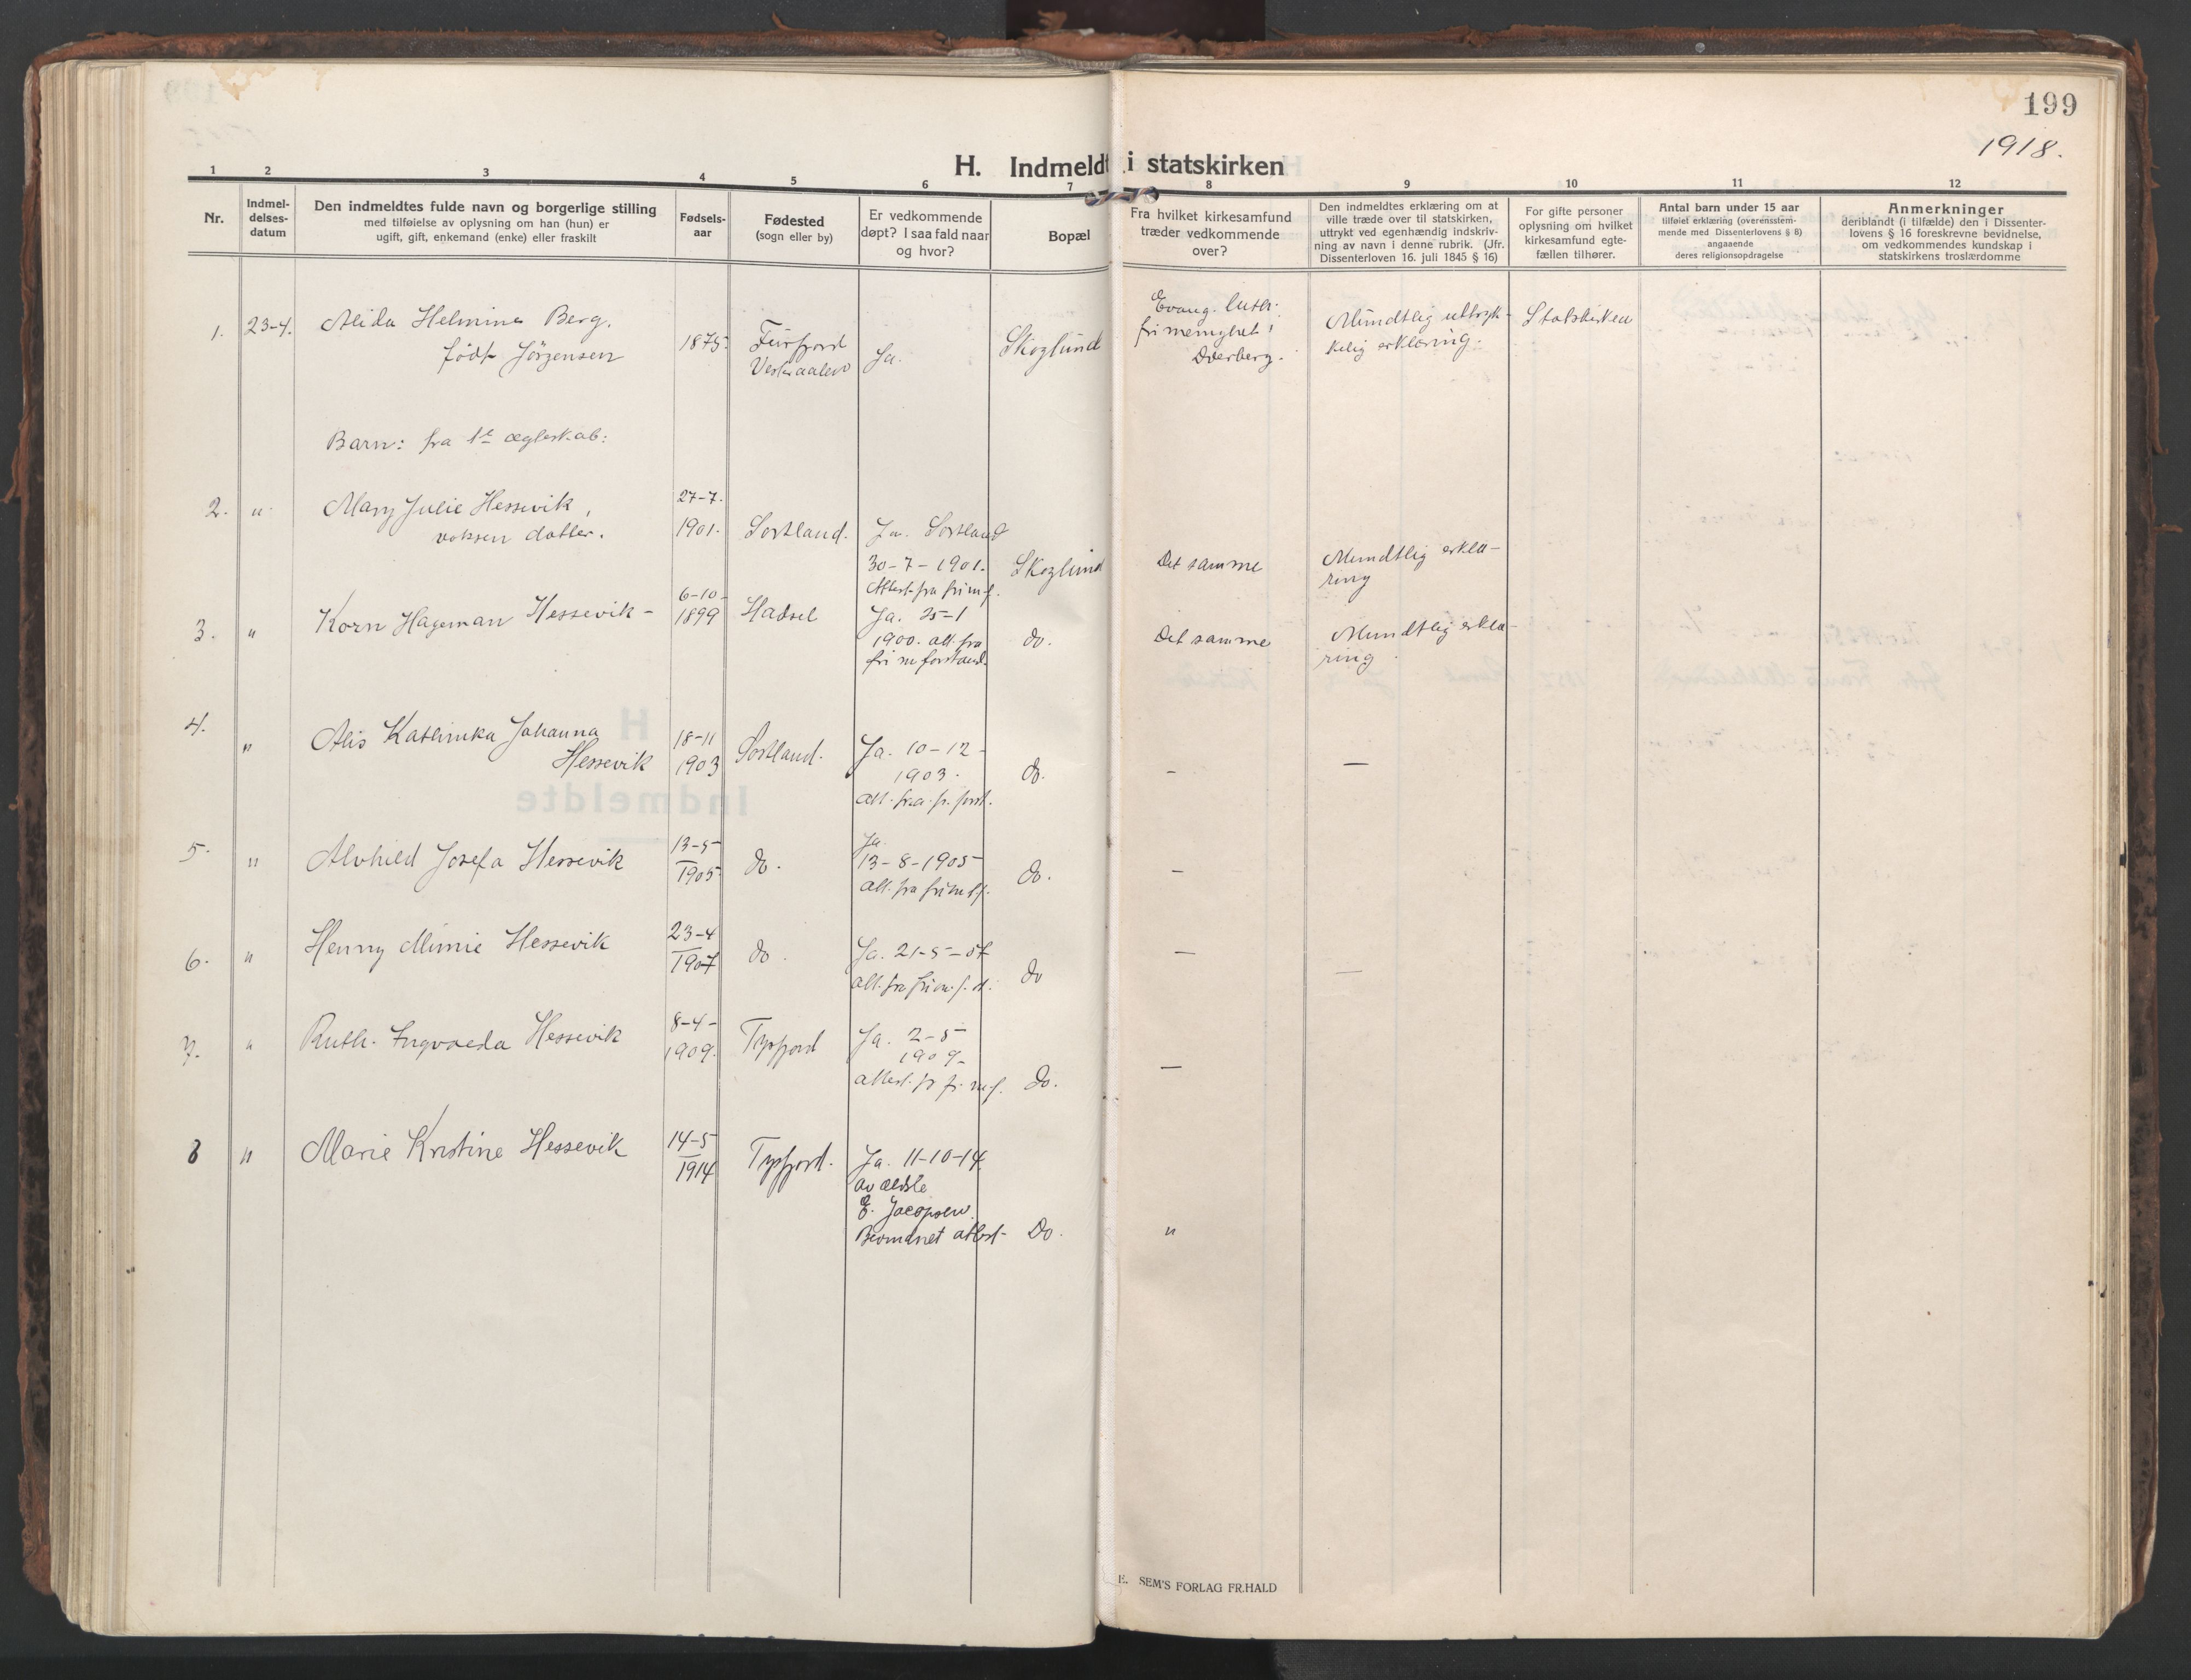 199
1918.
H. Indmeldt i statskirken
1 2 3 4 5 6 7 8 9 10 11 12
Nr.
Indmel-
delses-
datum
Den indmeldtes fulde navn og borgerlige stilling
med tilføielse av oplysning om han (hun) er
ugift, gift, enkemand (enke) eller fraskilt
Fødsels-
aar
Fødested
(sogn eller by)
Er vedkommende
døpt? I saa fald naar
og hvor?
Bopæl
Fra hvilket kirkesamfund
træder vedkommende
over?
Den indmeldtes erklæring om at
ville træde over til statskirken,
uttrykt ved egenhændig indskriv-
ning av navn i denne rubrik. (Jfr.
Dissenterloven 16. juli 1845 § 16)
For gifte personer
oplysning om hvilket
kirkesamfund egte-
fællen tilhører.
Antal barn under 15 aar
tilføiet erklæring (overensstem-
mende med Dissenterlovens § 8)
angaaende
deres religionsopdragelse
Anmerkninger
deriblandt (i tilfælde) den i Dissenter-
lovens § 16 foreskrevne bevidnelse,
om vedkommendes kundskap i
statskirkens troslærdomme
1.
23-4.
Alida Helmine Berg.
født Jörgensen
1875.
Vesteraalen
Ja.
Skoglund
Evang. luth.
fri menighet i
Dverberg.
Mundtlig uttryk-
kelig erklæring.
Statskirken
Barn: fra 1ste ægteskab:
2. "
Mary Julie Hessevik,
voksen datter.
27-7.
1901.
Sortland.
Ja. Sortland
30-7-1901.
Attest fra fri m.f.
Skoglund
Det samme
Mundtlig erklæ-
ring
3. "
Korn Hageman Hessevik -
6-10-
1899
Hadsel
Ja. 25-1
1900. att. fra
fri m forstand.
do.
Det samme
Mundtlig erklæ-
ring
4. "
Alis Kathinka Johanna
Hessevik
18-11
1903
Sortland.
Ja. 10-12-
1903.
att. fra fr. forst.
do.
-
—
5. "
Alvhild Josefa Hessevik
13-5-
1905
do.
Ja
13-8-1905
att. fra fri m f.
do.
-
6. "
Henny Mimie Hessevik
23-4
1907
do.
Ja. 21-5-07
att. fra fri m. f. st.
do
—
—
7. "
Ruth Ingvarda Hessevik
8-4-
1909.
Tysfjord
Ja. 2-5
1909-
attest. fr fr. m. f.
do.
—
8 "
Marie Kristine Hessevik
14-5
1914
Tysfjord.
Ja. 11-10-14
av ældste
E. Jacopsen.
attest-
Do.
"
E. SEM'S FORLAG FR.HALD